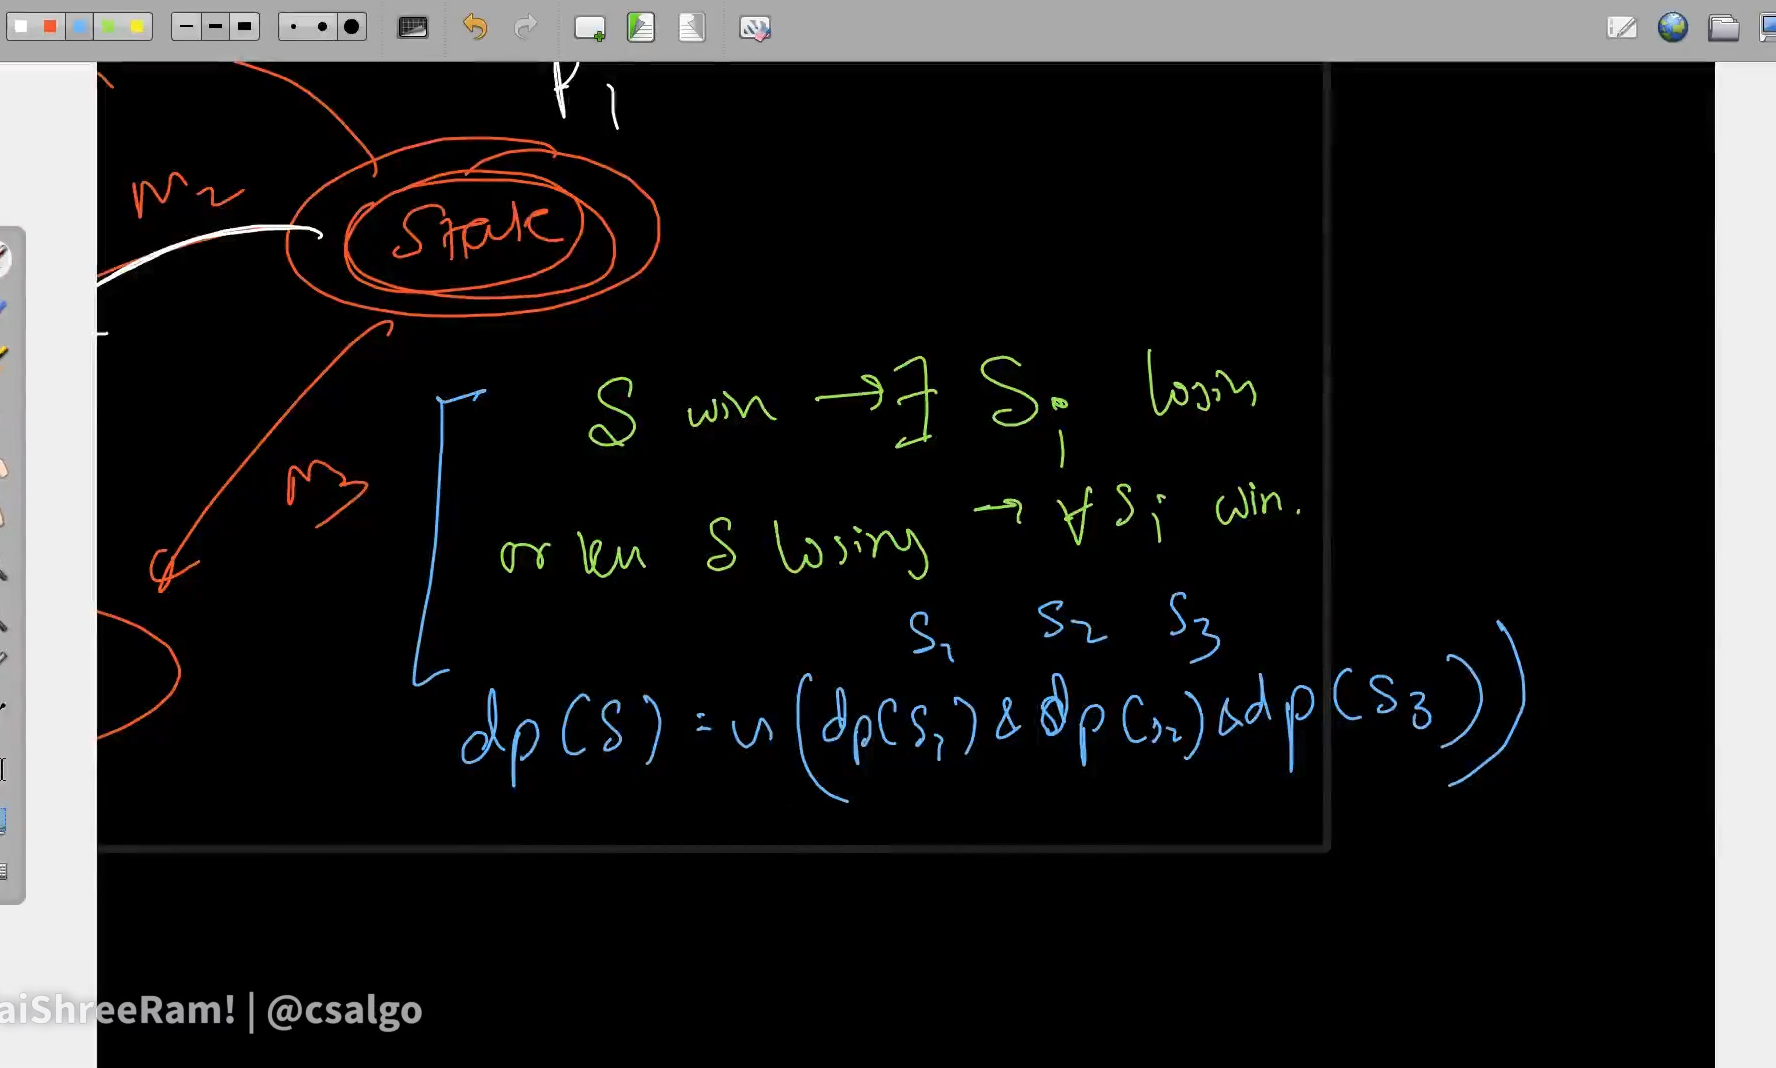 P1
M2
State
S win → ∃ Si losin
M3
or ken S losing → ∀ Si win.
S1 S2 S3
dp(S) = ~ (dp(S1) & dp(S2) & dp(S3))
aiShreeRam! | @csalgo